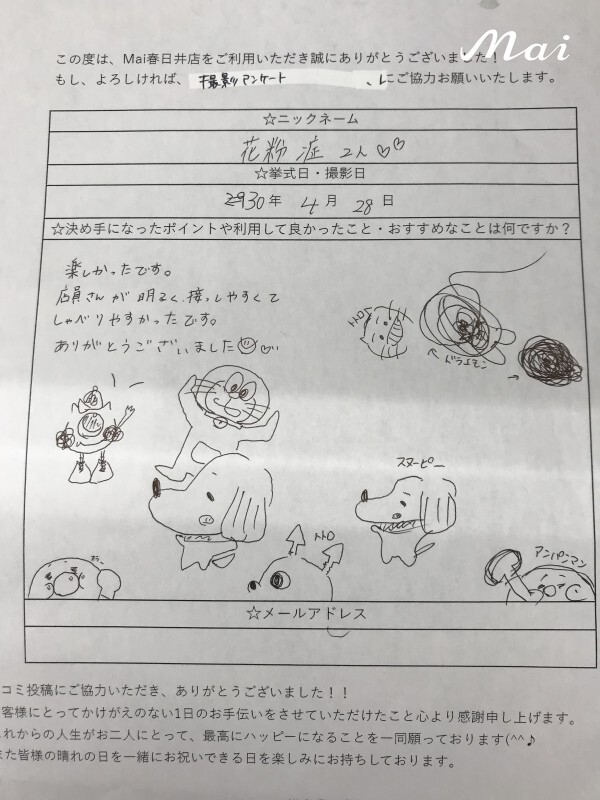 Mai
この度は、Mai春日井店をご利用いただき誠にありがとうございました！
もし、よろしければ、撮影アンケート、にご協力お願いいたします。
☆ニックネーム
花粉症 2人♡♡
☆挙式日・撮影日
2930年 4月 28日
☆決め手になったポイントや利用して良かったこと・おすすめなことは何ですか？
楽しかったです。
店員さんが明るく、接しやすくて
しゃべりやすかったです。
ありがとうございました
トトロ
ドラえモン
スヌーピー
トトロ
アンパンマン
☆メールアドレス
コミ投稿にご協力いただき、ありがとうございました！！
客様にとってかけがえのない1日のお手伝いをさせていただけたこと心より感謝申し上げます。
れからの人生がお二人にとって、最高にハッピーになることを一同願っております(^^♪
また皆様の晴れの日を一緒にお祝いできる日を楽しみにお待ちしております。